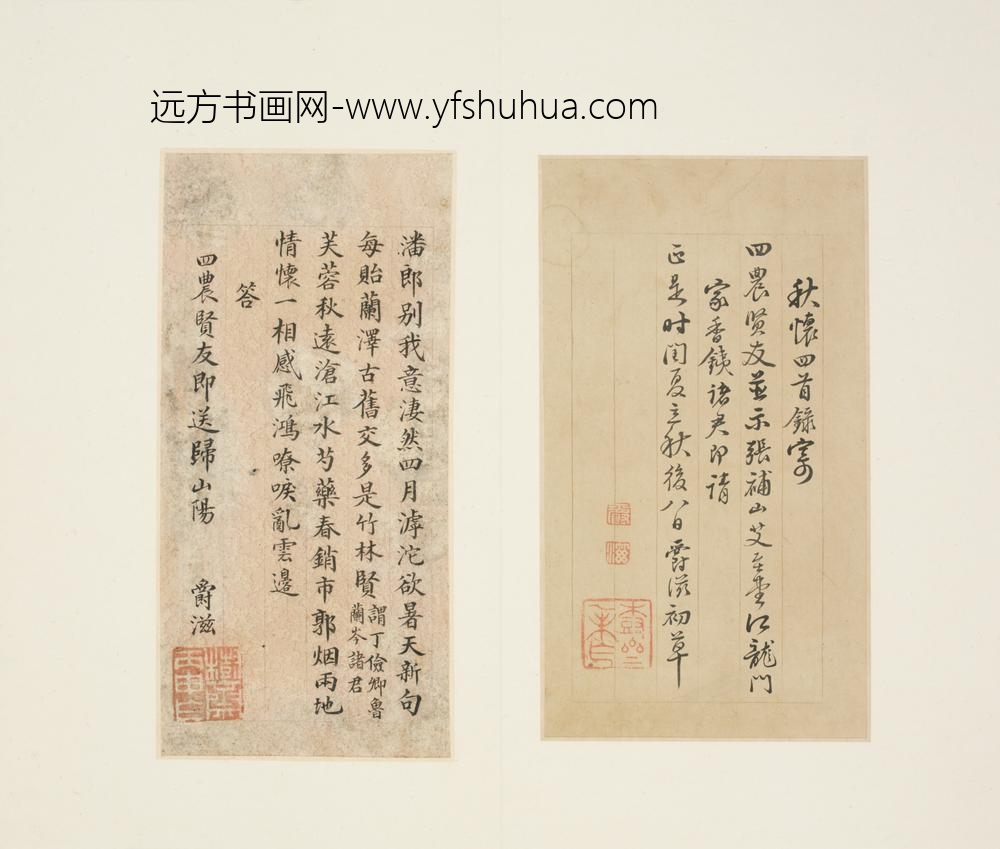 远方书画网-www.yfshuhua.com
秋懷四首錄寄
四農賢友並示張補山艾至堂江龍門
家香鐵諸君即請
正是时闰夏立秋後八日爵滋初草
潘郎别我意淒然四月滹沱欲暑天新句
每貽蘭澤古舊交多是竹林賢謂丁儉卿魯蘭岑諸君
芙蓉秋遠滄江水芍藥春銷市郭烟雨地
情懷一相感飛鴻嘹唳亂雲邊
答
四農賢友即送歸山陽 爵滋